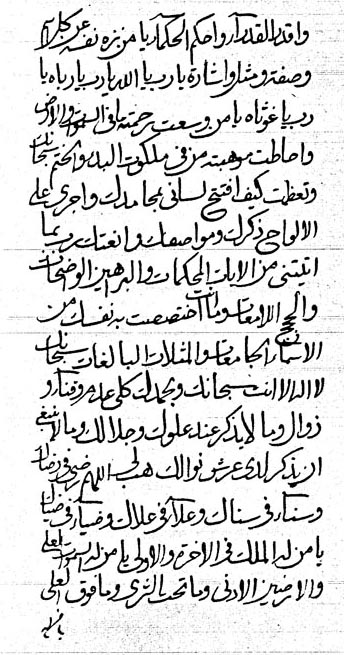 واقدر القدرآء واحكم الحكمآء يا من نزه نفسه عن كل اسم
وصفة ومثل واشارة يا رب يا الله يا رب يا رباه يا
رب يا غوثاه يا من وسعت رحمته ما في السموات والارض
واحاطت موهبته من في ملكوت البدء والختم سبحانك
وتعظمت كيف افتح لساني بمحامدك واجرى على
الالواح ذكرك ومواصفك وانعتك رب بما
اتيتني من الايات المحكمات والبراهين الواضحات
والحجج اللامعات وما انت اختصصت به نفسك من
الاسمآء الجامعات والمثلات البالغات سبحانك
لا اله الا انت سبحانك وبحمدك كلي عدم وفنآء و
زوال وما لا يذكر عند علوك وجلالك وما لا ينبغي
ان يذكر لدى عرش نوالك هب لي اللهم رضى في رضاك
وسنآء في سناك وعلآء في علاك وضيآء في ضياك
يا من له الملك في الاخرة والاولى يا من له السموات العلى
والارضين الادنى وما تحت الثرى وما فوق العلى